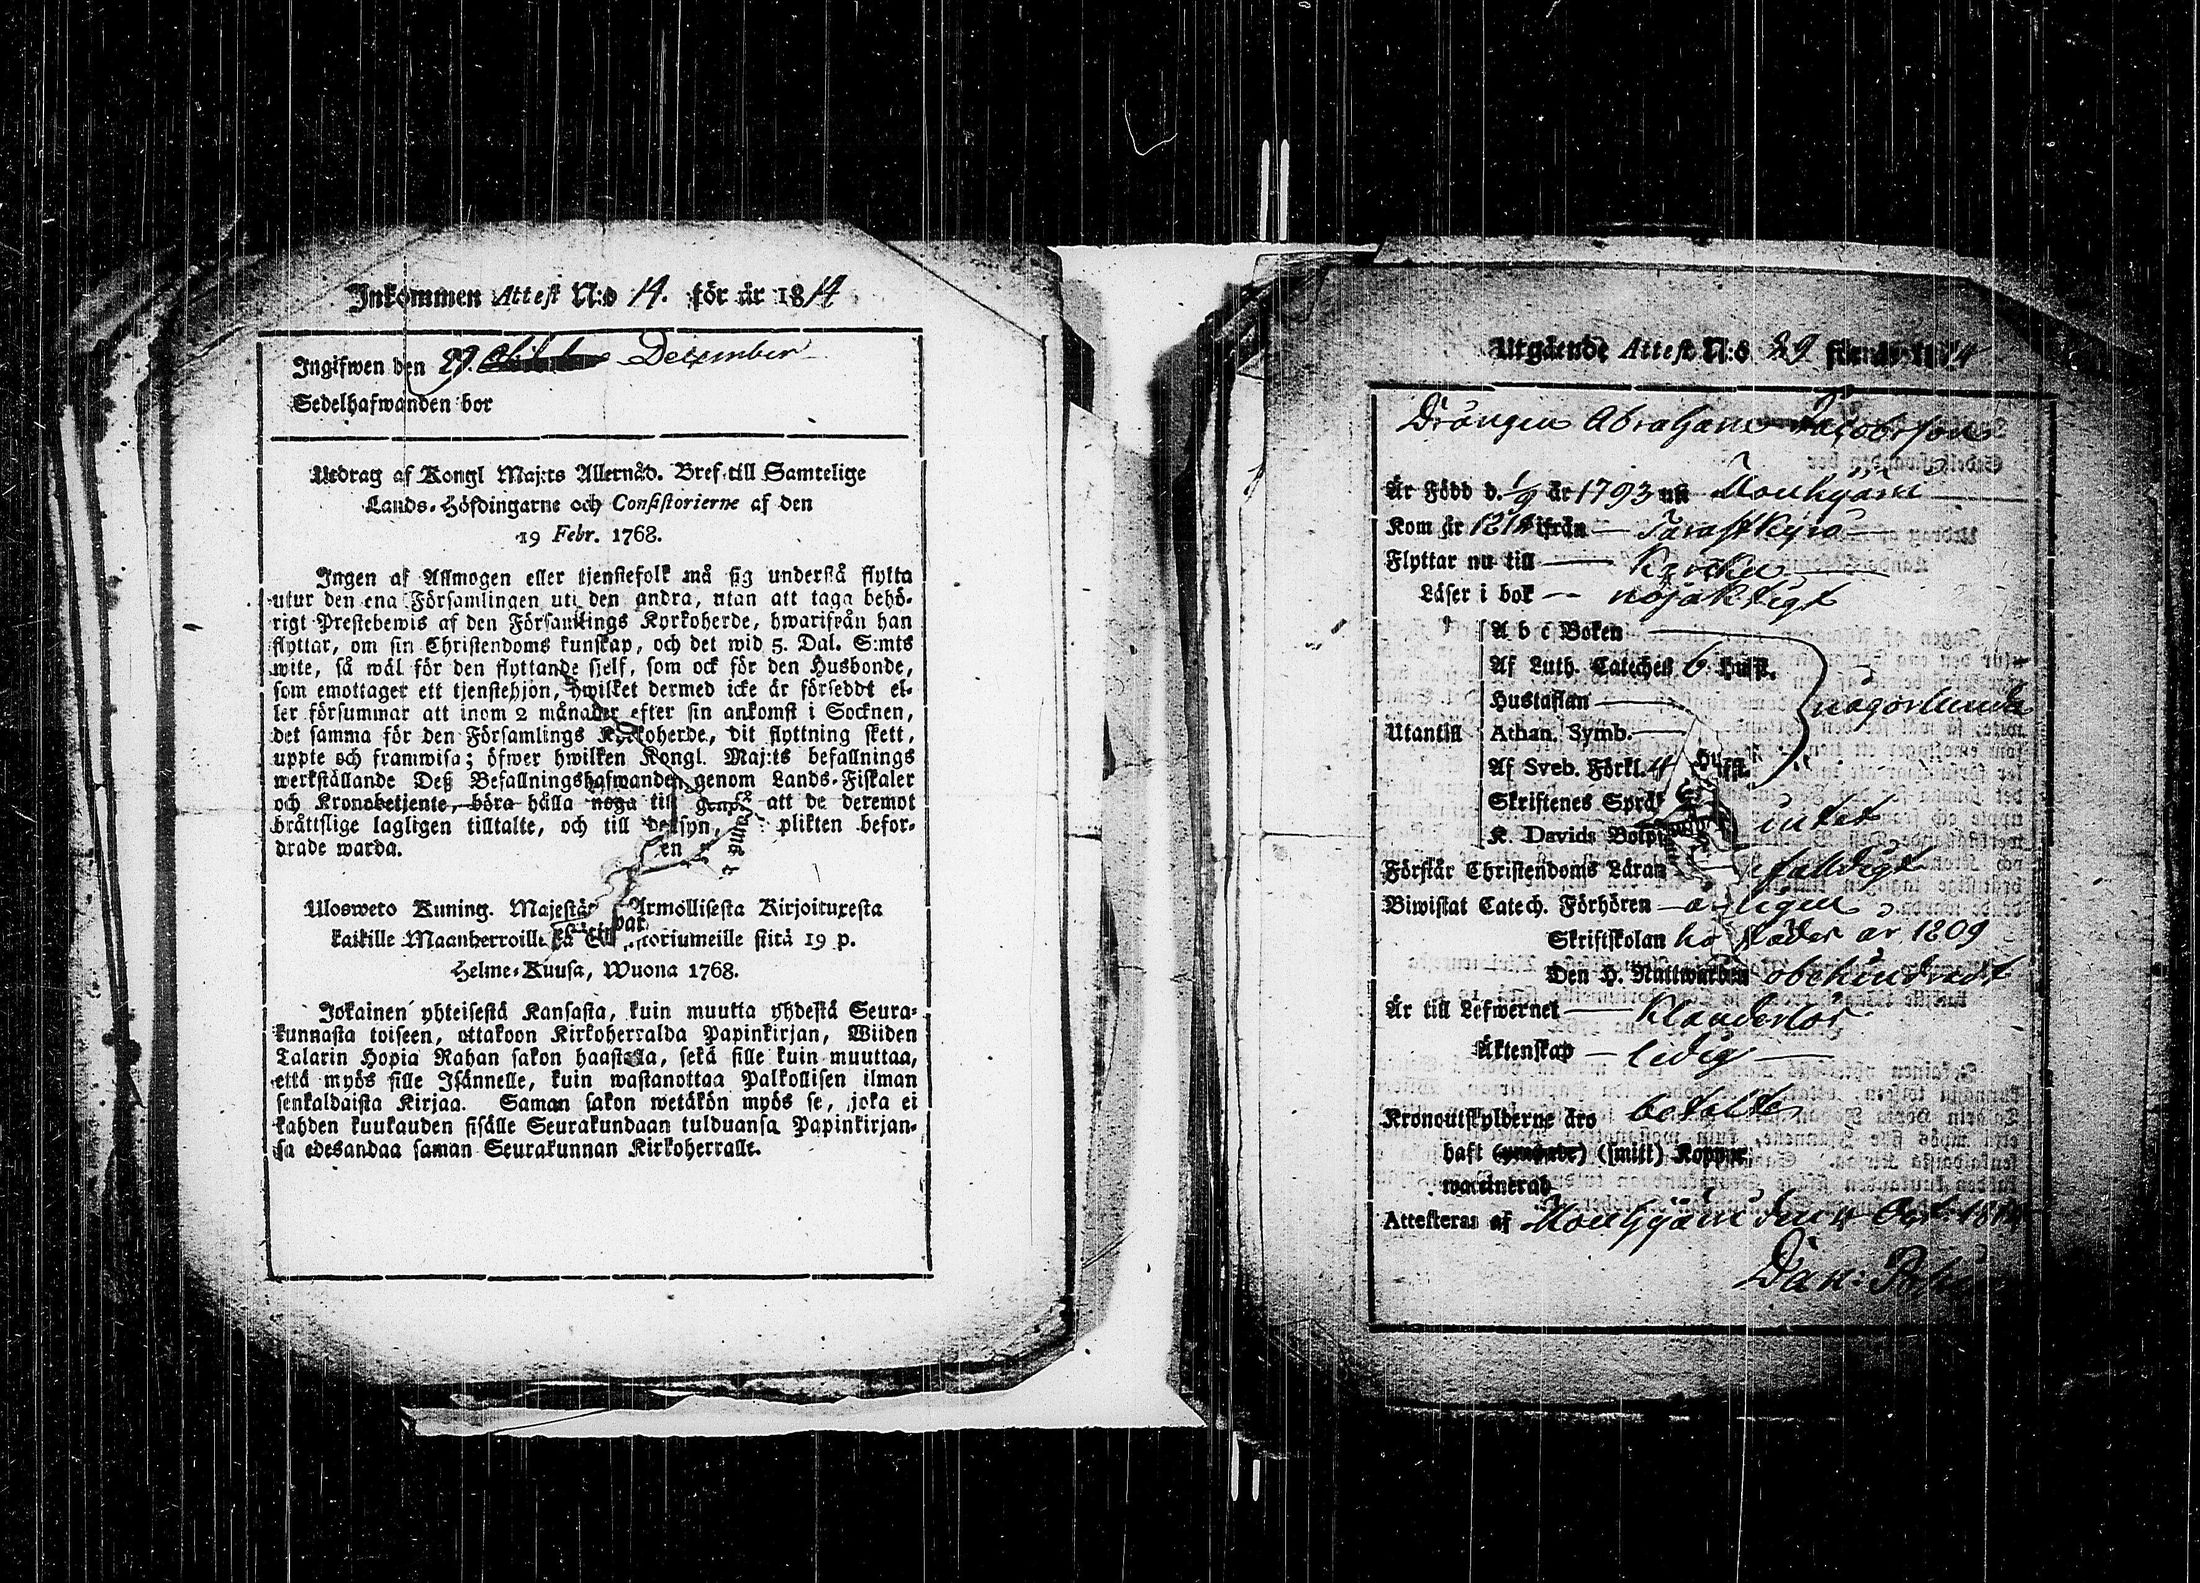 Inkommen Attest N:o 14. för år 1814
Ingifwen den 29. December
Sedelhafwanden bor
Utdrag af Kongl Maj:ts Allernåd. Bref till Samtelige
Lands-Höfdingarne och Consistorierne af den
19 Febr. 1768.
Ingen af Allmogen eller tjenstefolk må sig understå flytta
utur den ena Församlingen uti den andra, utan att taga behö-
rigt Prestebewis af den Församlings Kyrkoherde, hwarifrån han
flyttar, om sin Christendoms kunskap, och det wid 5. Dal. S:mts
wite, så wäl för den flyttande sjelf, som ock för den Husbonde,
som emottager ett tjenstehjon, hwilket dermed icke är försedt el-
ler försummar att inom 2 månader efter sin ankomst i Socknen,
det samma för den Församlings Kyrkoherde, dit flyttning skett,
uppte och framwisa; öfwer hwilken Kongl. Maj:ts befallnings
werkställande Deß Befallningshafwanden genom Lands-Fiskaler
och Kronobetjente, böra hålla noga till att de deremot
bråttslige lagligen tilltalte, och till plikten befor-
drade warda.
Ulosweto Kuning. Majestä Armollisesta Kirjoituxesta
kaikille Maanherroill toriumeille siitä 19 p.
Helme-Kuusa, Wuona 1768.
Jokainen yhteisestä Kansasta, kuin muutta yhdestä Seura-
kunnasta toiseen, ottakoon Kirkoherralda Papinkirjan, Wiiden
Talarin Hopia Rahan sakon haastolla, sekä sille kuin muuttaa,
että myös sille Isännelle, kuin wastanottaa Palkollisen ilman
senkaldaista Kirjaa. Saman sakon wetäkön myös se, joka ei
kahden kuukauden sisälle Seurakundaan tulduansa Papinkirjan-
sa edesandaa saman Seurakunnan Kirkoherralle.
Utgående Attest N:o 29 14
Drängen Abraham Jacobsson
Är Född d. 1/9 år 1793 uti Mouhijärvi
Kom år 1814 ifrån Tavastkyro
Flyttar nu till Karkku
Läser i bok nöjaktigt
Utantill
A b c Boken
Af Luth. Cateches 6 hufst.
Hustaflan någorlunda
Athan. Symb.
Af Sveb. Förkl. 4 Hufst.
Skriftenes Språk
K. Davids intet
Förstår Christendoms Läran
Biwistat Catech. Förhören
Skriftskolan år 1809
Den H. Nattwarden obehindradt
Är till Lefwernet Klanderlös
Äktenskap ledig
Kronoutskylderne äro betalte
haft (smitt) Koppor
waccinerad
Attesteras af Mouhijärvi den 1814
Dan: